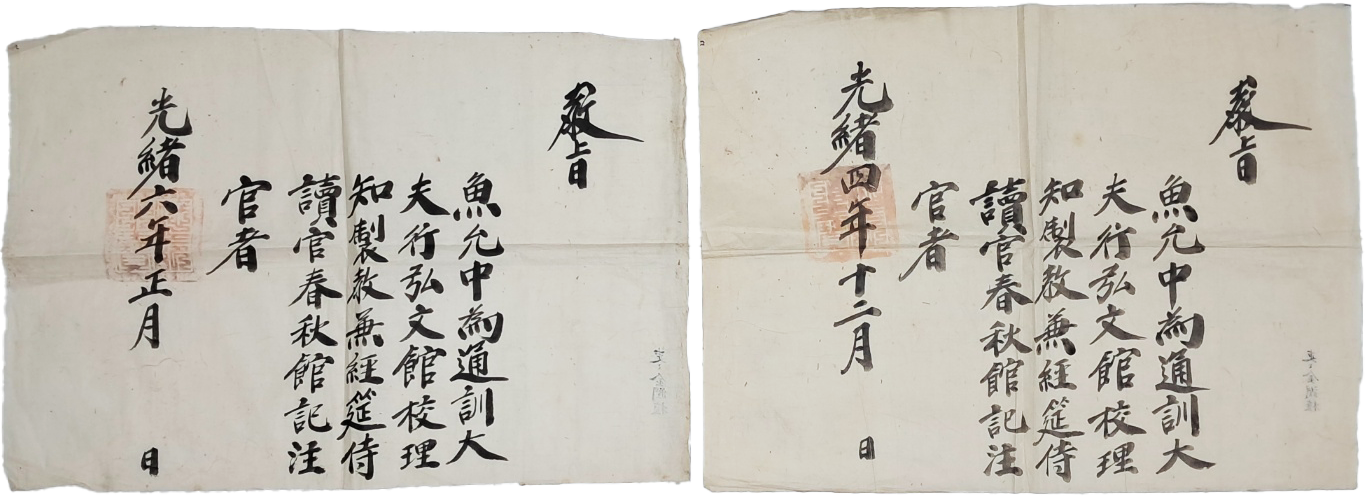 敎旨
魚允中爲通訓大
夫行弘文館校理
知製敎兼經筵侍
讀官春秋館記注
官者
光緖六年正月 日
敎旨
魚允中爲通訓大
夫行弘文館校理
知製敎兼經筵侍
讀官春秋館記注
官者
光緖四年十二月 日